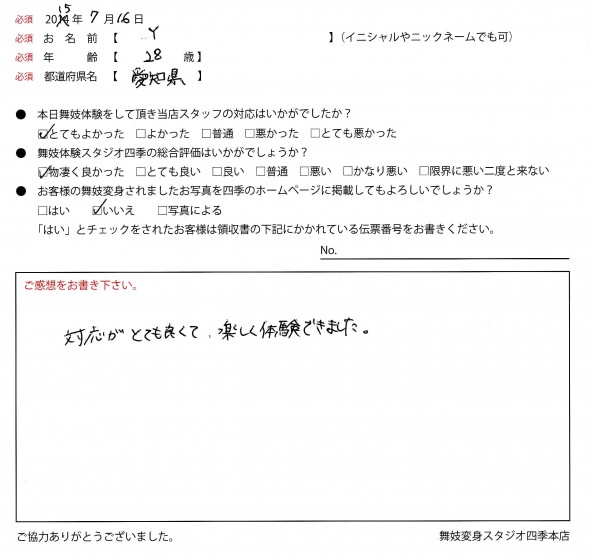 必須 2014年 7月16日
15
必須 お名前【 Y 】（イニシャルやニックネームでも可）
必須 年齢【 28 歳】
必須 都道府県名【 愛知県 】
● 本日舞妓体験をして頂き当店スタッフの対応はいかがでしたか？
☑とてもよかった □よかった □普通 □悪かった □とても悪かった
● 舞妓体験スタジオ四季の総合評価はいかがでしょうか？
☑物凄く良かった □とても良い □良い □普通 □悪い □かなり悪い □限界に悪い二度と来ない
● お客様の舞妓変身されましたお写真を四季のホームページに掲載してもよろしいでしょうか？
□はい ☑いいえ □写真による
「はい」とチェックをされたお客様は領収書の下記にかかれている伝票番号をお書きください。
No.
ご感想をお書き下さい。
対応がとても良くて、楽しく体験できました。
ご協力ありがとうございました。 舞妓変身スタジオ四季本店